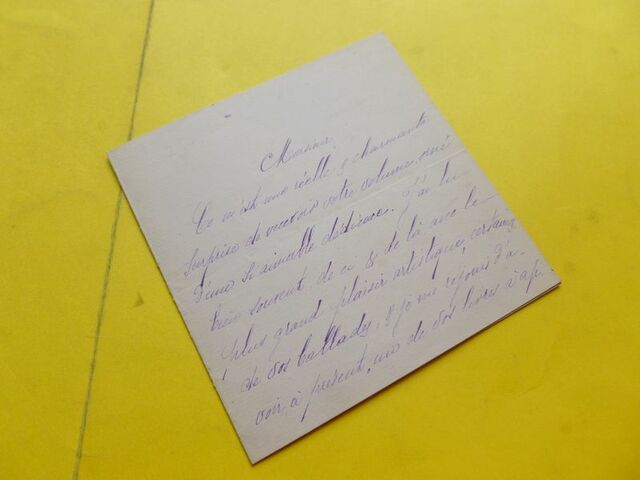 Monsieur
Ce m'est une réelle & charmante
surprise de recevoir votre volume, orné
d'une si aimable dédicace. J'ai lu
bien souvent, de ci & de là avec le
plus grand plaisir artistique, certaines
de vos ballades, & je me réjouis d'a-
voir, à présent, un de vos livres à ap-